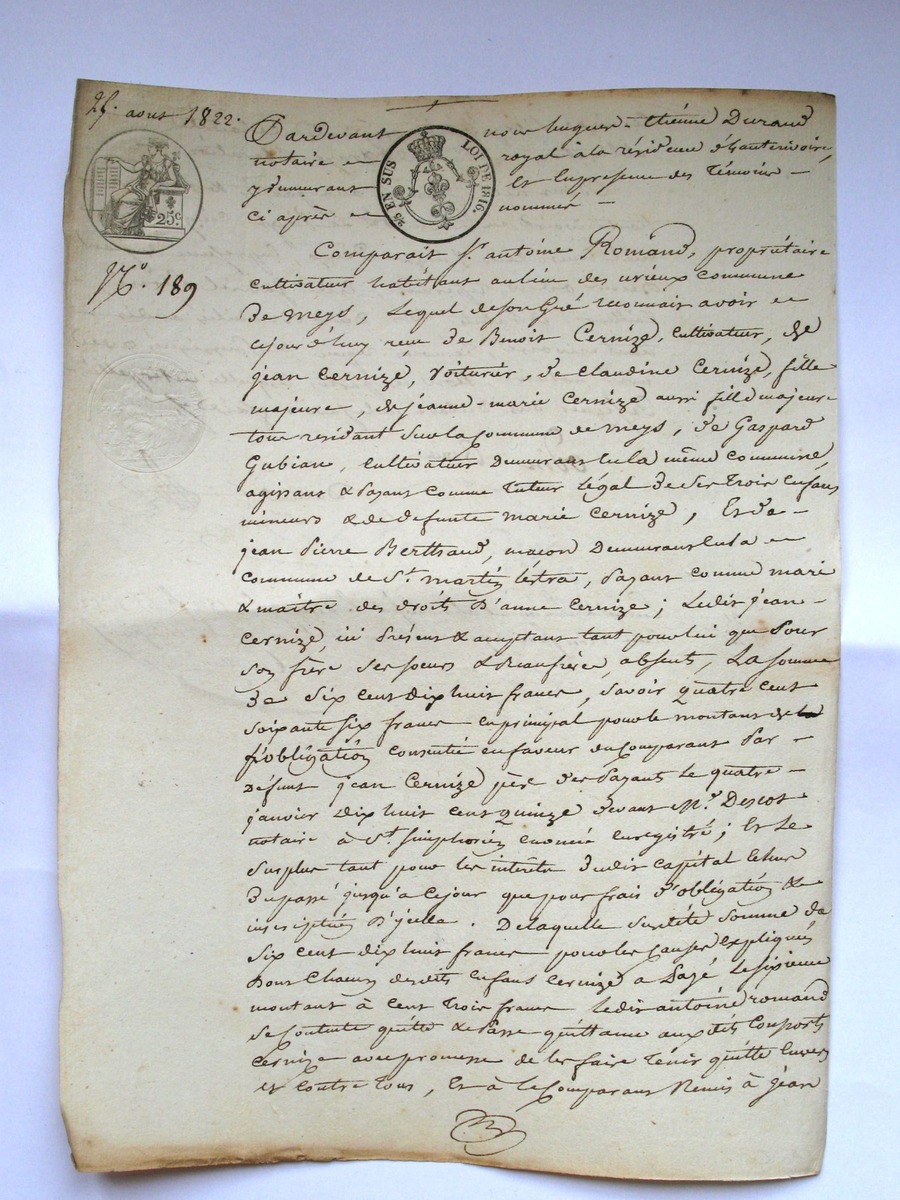 25. aout 1822.
Pardevant nous hugues-Etienne Durand
notaire royal à la résidence d'hauterivoire,
y demeurant et en presence des Témoins
ci après nommés
25 EN SUS LOI DE 1816.
25c.
N.° 189
Comparait Sr. antoine Romand, propriétaire
cultivateur habitant au lieu des vrieux commune
de meys, Lequel de son Gré reconnait avoir
cejourd'huy reçu de Benoit Cernize, cultivateur, de
jean Cernize, voiturier, de Claudine Cernize, fille
majeure, de jeanne-marie Cernize aussi fille majeure
tous residant sur la Commune de meys, de Gaspard
Gubian, cultivateur Demeurant en la même commune,
agissant & payant comme Tuteur Légal de ses Trois Enfans
mineurs & de defunte marie Cernize, Et de
jean Pierre Berthaud, maçon Demeurant en la
commune de St. martin lestra, payant comme mari
& maitre des droits D'anne Cernize; Ledit jean
Cernize, ici présent & acceptant tant pour lui que pour
son frère ses soeurs & Beaufrère, absents, La somme
de Six cent dix huit francs, savoir quatre cent
soixante six francs en principal pour le montant de
l'obligation consentie en faveur du Comparant Par
défunt jean Cernize père des payants Le quatre
janvier Dix huit cent quinze devant Me. Descot
notaire à St. Simphorien enoncée enregistré; Et Le
Surplus tant pour les interêts dudit capital échus
Du passé jusqu'à cejour que pour frais d'obligation &
inscription D'jcelle. De laquelle susdite somme de
Six cent dix huit francs pour les causes Expliquées
Dont Chacun desdits Enfans Cernize a Payé Le sixieme
montant à Cent Trois francs Ledit antoine romand
se contente quitte & Passe quittance auxdits Consorts
Cernize avec promesse de les faire Tenir quitte Envers
et Contre Tous, Et à le Comparant Remis à jean